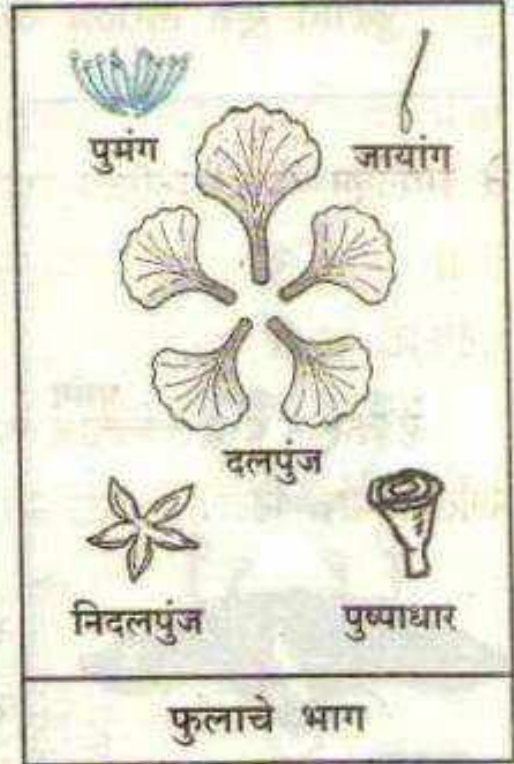 पुमंग
जायांग
दलपुंज
निदलपुंज
पुष्पाधार
फुलाचे भाग